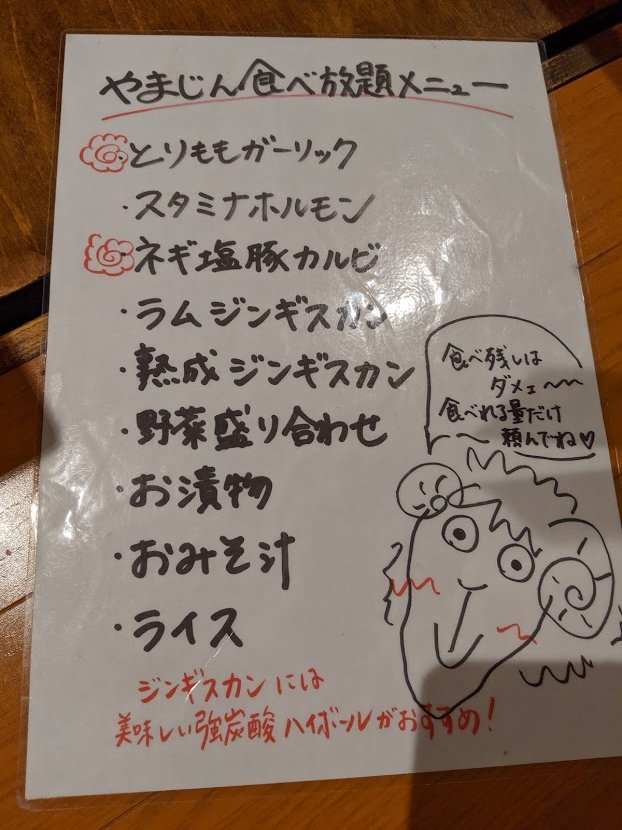 やまじん食べ放題メニュー
とりももガーリック
・スタミナホルモン
ネギ塩豚カルビ
・ラムジンギスカン
・熟成ジンギスカン
・野菜盛り合わせ
・お漬物
・おみそ汁
・ライス
食べ残しは
ダメェ〜〜
食べれる量だけ
頼んでね♡
ジンギスカンには
美味しい強炭酸ハイボールがおすすめ!